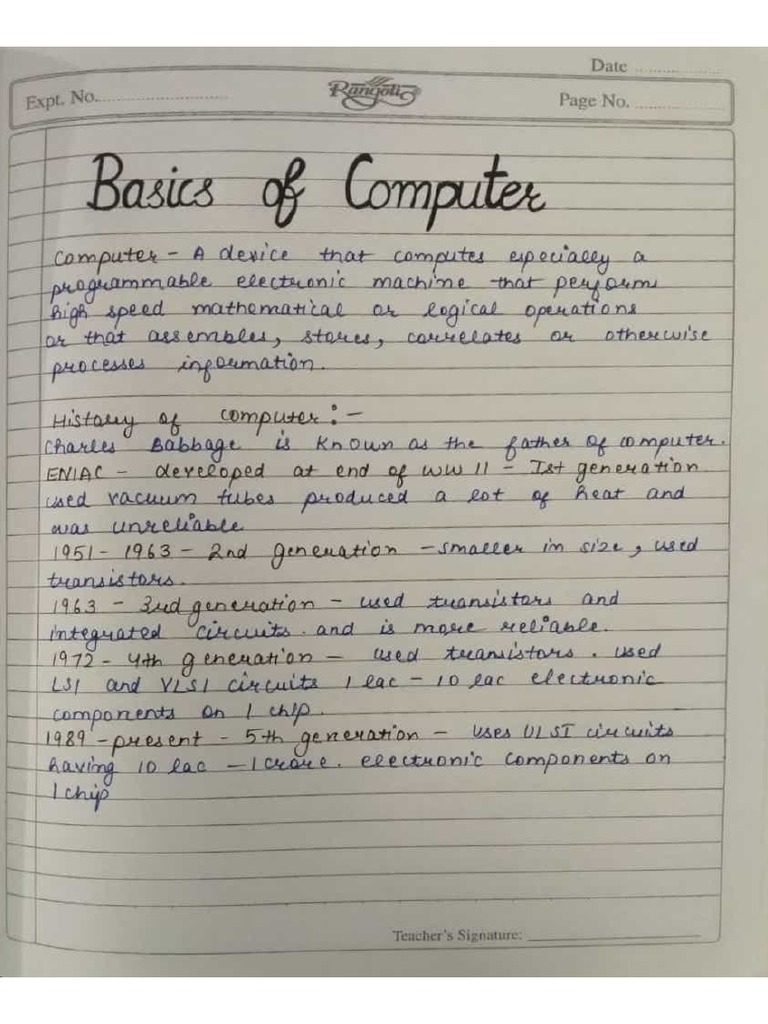 Date ....................
Expt. No. ............................ Rangoli Page No. ....................
Basics of Computer
Computer - A device that computes especially a
programmable electronic machine that performs
high speed mathematical or logical operations
or that assembles, stores, correlates or otherwise
processes information.
History of computer : -
Charles Babbage is known as the father of computer.
ENIAC - developed at end of WW II - Ist generation
used vacuum tubes produced a lot of heat and
was unreliable
1951 - 1963 - 2nd generation - smaller in size, used
transistors.
1963 - 3rd generation - used transistors and
integrated circuits. and is more reliable.
1972 - 4th generation - used transistors. used
LSI and VLSI circuits 1 lac - 10 lac electronic
components on 1 chip.
1989 - present - 5th generation - uses ULSI circuits
having 10 lac - 1 crore. electronic components on
1 chip
Teacher's Signature: ____________________